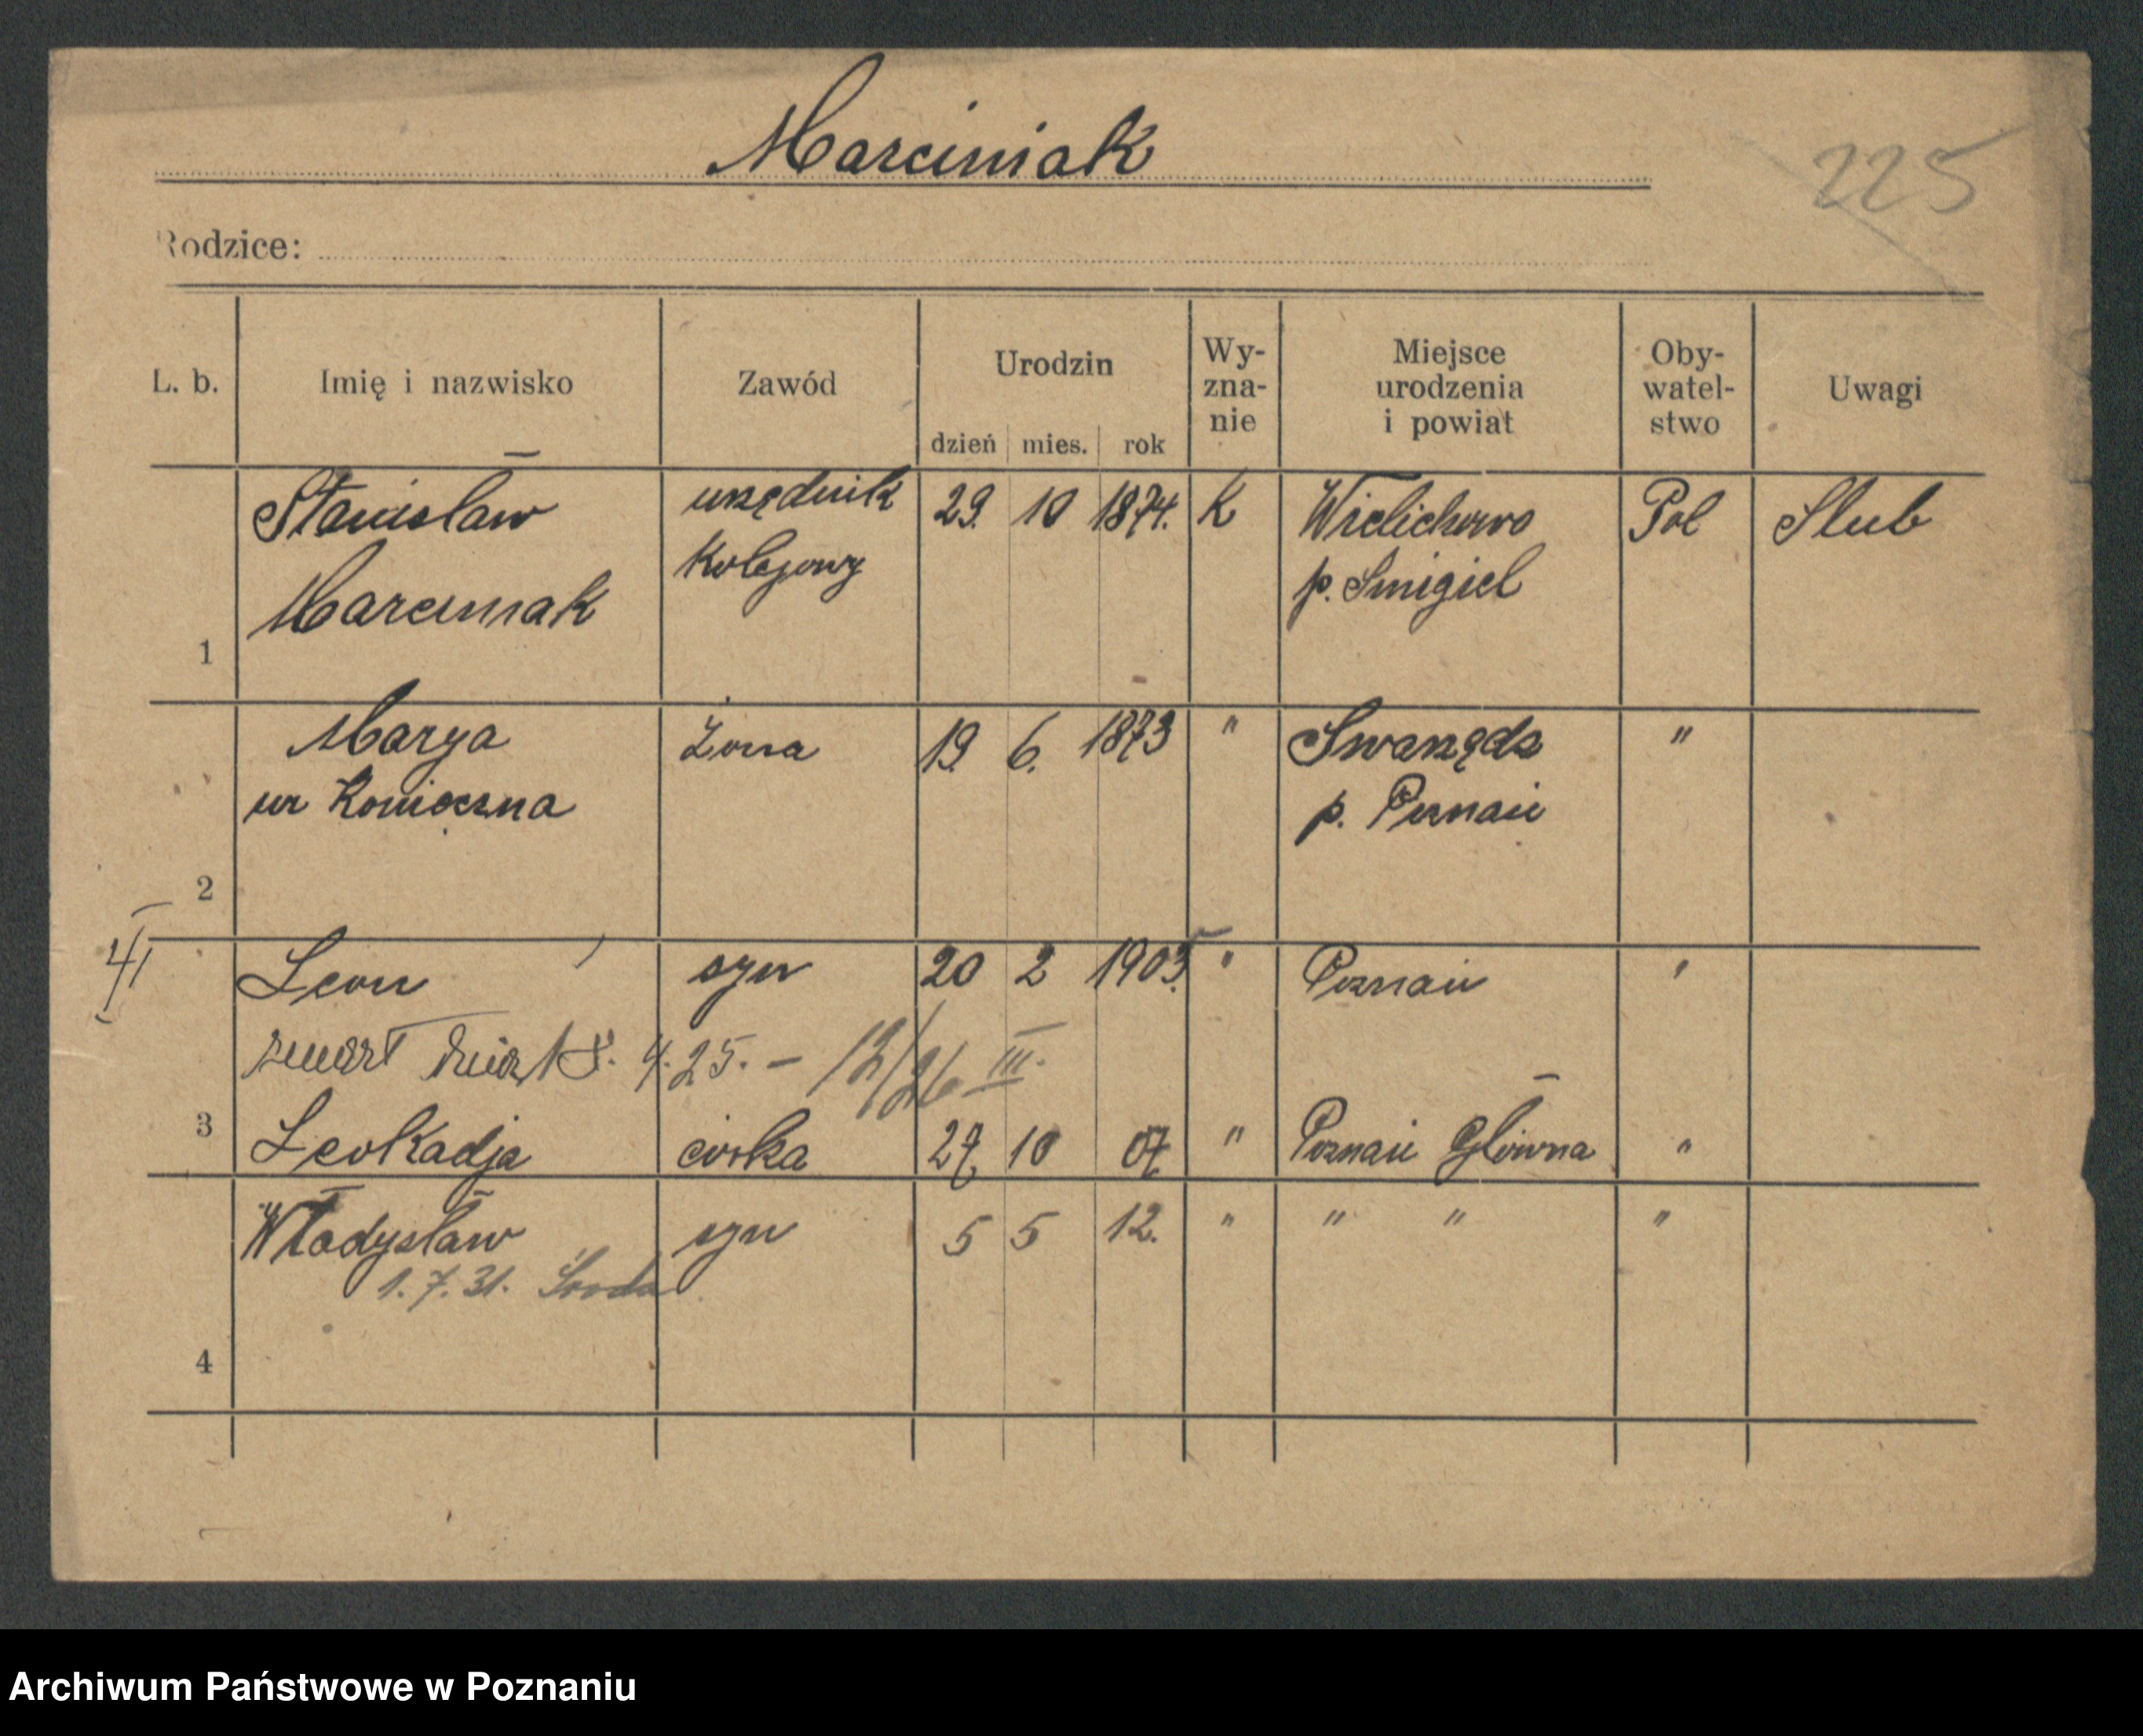 Marciniak
225
Rodzice:
L. b. Imię i nazwisko Zawód Urodzin dzień mies. rok Wy-zna-nie Miejsce urodzenia i powiat Oby-watel-stwo Uwagi
Stanisław urzędnik 29. 10 1874. K Wielichowo Pol Slub
Marciniak kolejowy p. Smigiel
1
Marya żona 19. 6. 1873 " Swarzędz "
ur Konieczna p. Poznań
2
Leon syn 20 2 1905. " Poznań "
zmarł dnia 18. 4. 25. – 12/26 III.
3 Leokadja córka 27. 10 07 " Poznań Główna "
Władysław syn 5 5 12. " " " "
1. 7. 31. Środa
4
Archiwum Państwowe w Poznaniu